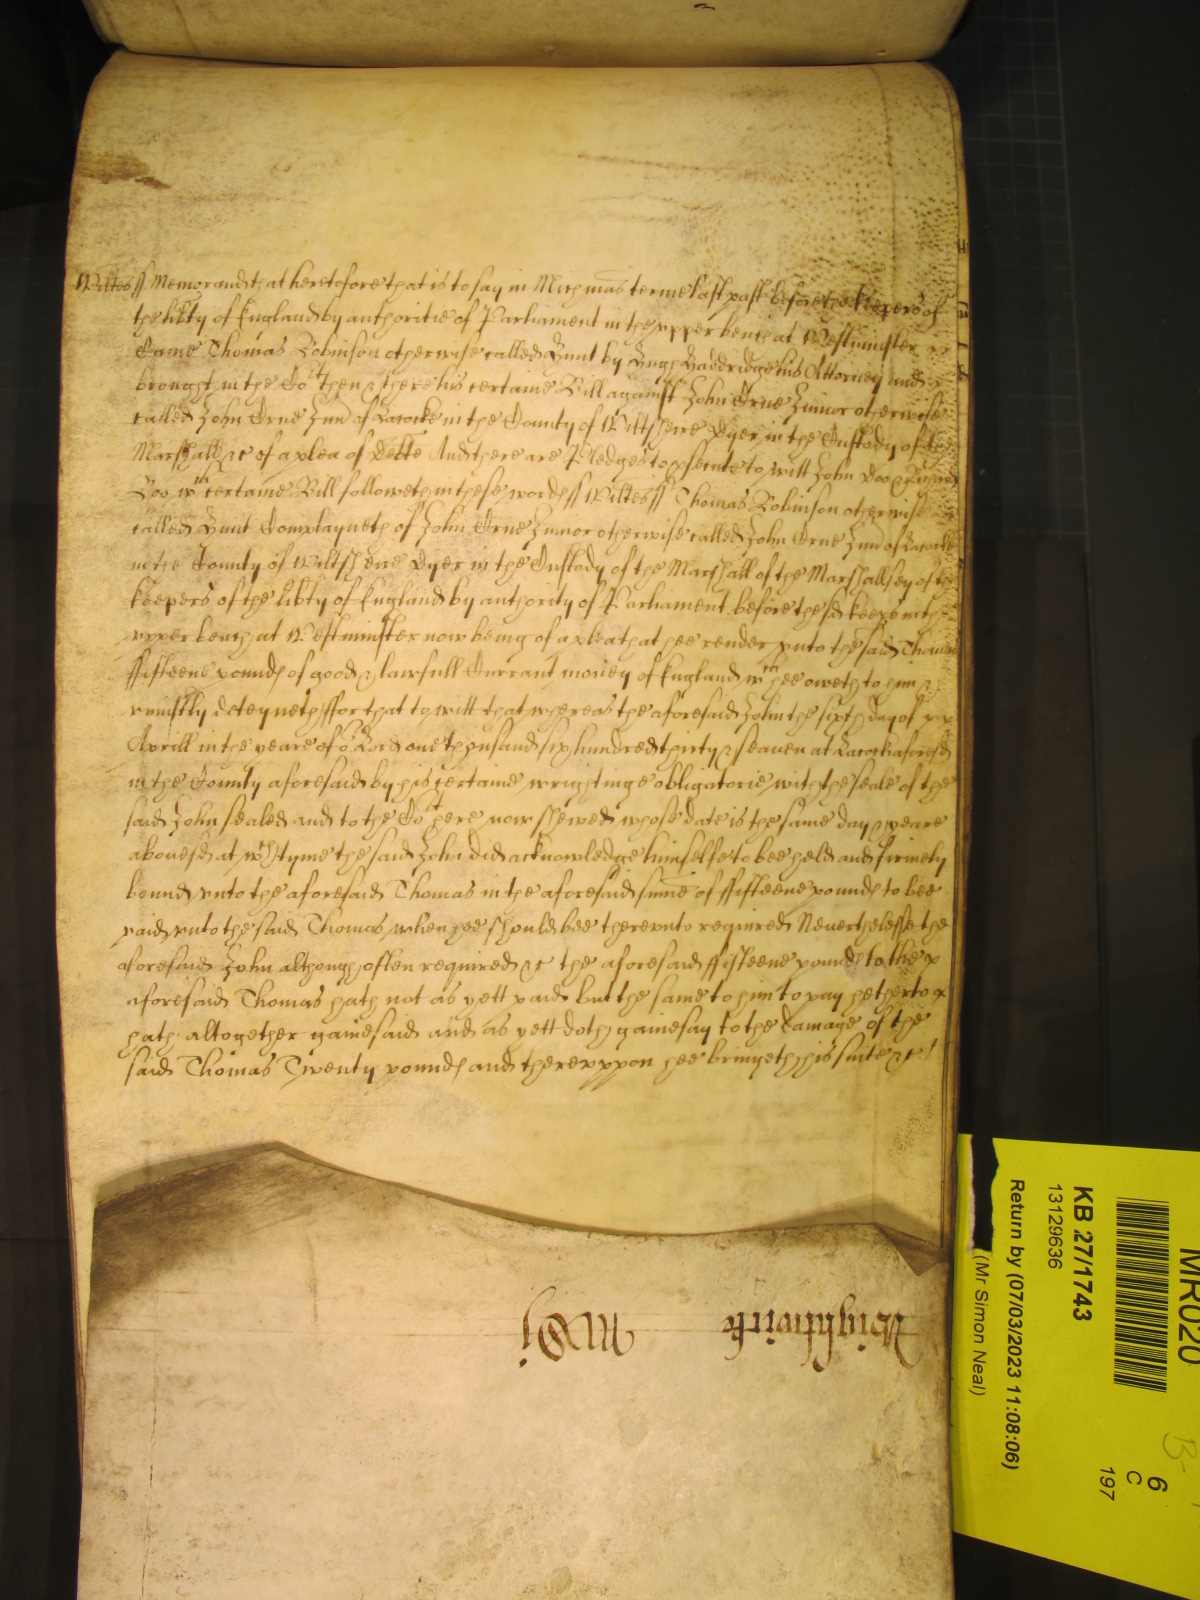 Wiltes ss Memorand that heretofore that is to say in Michmas terme last past before the Keepers of
the libty of England by authoritie of Parliament in the upper bench at Westminster
Came Thomas Robinson otherwise called Hunt by Hugh his Attorney and
brought in the Cot then & there his certaine Bill against John Orne Junior otherwise
called John Orne Jun of Lacocke in the County of Wiltsheire Dyer in the Custody of the
Marshall &c of a plea of debte And there are Pledges to psecute to witt John Doo &
Roo wch certaine Bill followeth in these words ss Wiltes ss Thomas Robinson otherwise
called Hunt Complayneth of John Orne Junior otherwise called John Orne Jun of Lacocke
in the County of Wiltsheire Dyer in the Custody of the Marshall of the Marshallsey of the
keepers of the libty of England by authority of Parliament before the sd keeps in the
upper bench at Westminster now being of a plea that hee render unto the said Thomas
ffifteene pounds of good & lawfull Currant money of England wch hee oweth to him &
uniustly deteyneth ffor that to witt that whereas the aforesaid John the sixth day of
Aprill in the yeare of or Lord one thousand six hundred thirty & seaven at Lacock aforesd
in the County aforesaid by his certaine wrightinge obligatorie with the seale of the
said John sealed and to the Cot here now shewed whose date is the same day & yeare
abovesd at wch tyme the said John did acknowledge himselfe to bee held and firmely
bound unto the aforesaid Thomas in the aforesaid sume of ffifteene pounds to bee
paid unto the said Thomas when hee should bee thereunto required Neverthelesse the
aforesaid John although often required &c the aforesaid ffifteene pounds to the
aforesaid Thomas hath not as yett paid but the same to him to pay hetherto
hath altogether gainesaid and as yett doth gainesay to the damage of the
said Thomas Twenty pounds and thereuppon hee bringeth his suite &c
Wightwicke
MR020
KB 27/1743
13129636
Return by (07/03/2023 11:08:06)
(Mr Simon Neal)
6
C
197